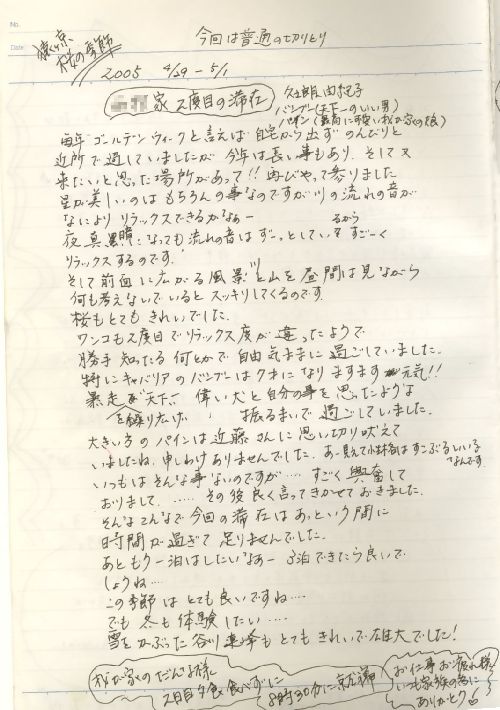 No.
Date
今回は普通の切りとり
桜の季節
2005 4/29 - 5/1
家 2度目の滞在
バンブー(天下一のいい男)
毎年ゴールデンウィークと言えば自宅から出ずのんびりと
近所で過していましたが今年は長い事もあり、そして又
来たいと思った場所があって!! 再びやって参りました
星が美しいのはもちろんの事なのですが川の流れの音が
なにより リラックスできるかなぁー
夜、真暗になっても流れの音はずーっとしているから すごーく
リラックスするのです。
そして前面に広がる風景と山を昼間は見ながら
何も考えないでいると スッキリしてくるのです
桜もとてもきれいでした。
ワンコも2度目でリラックス度が違ったようで
勝手知ったる何とかで自由気ままに過ごしていました。
特にキャバリアのバンブーは7才になりますます元気!!
暴走を繰り広げ、天下、偉い犬と自分の事を思ったような
振るまいで過ごしていました。
大きい方のパインは近藤さんに思い切り吠えて
いましたね。申しわけありませんでした。
いつもはそんな事ないのですが…… すごく興奮して
おりまして、…… その後良く言ってきかせておきました。
そんなこんなで今回の滞在はあっという間に
時間が過ぎて足りませんでした。
あともう一泊はしたいなあー 3泊できたら良いで
しょうね…
この季節はとても良いですね…
でも冬も体験したい……
雪をかぶった谷川連峰もとてもきれいで雄大でした!
家のだんな様
2日目夕食食べずに
8時30分に就寝
お仕事お疲れ様
いつも家族の為に
ありがとう